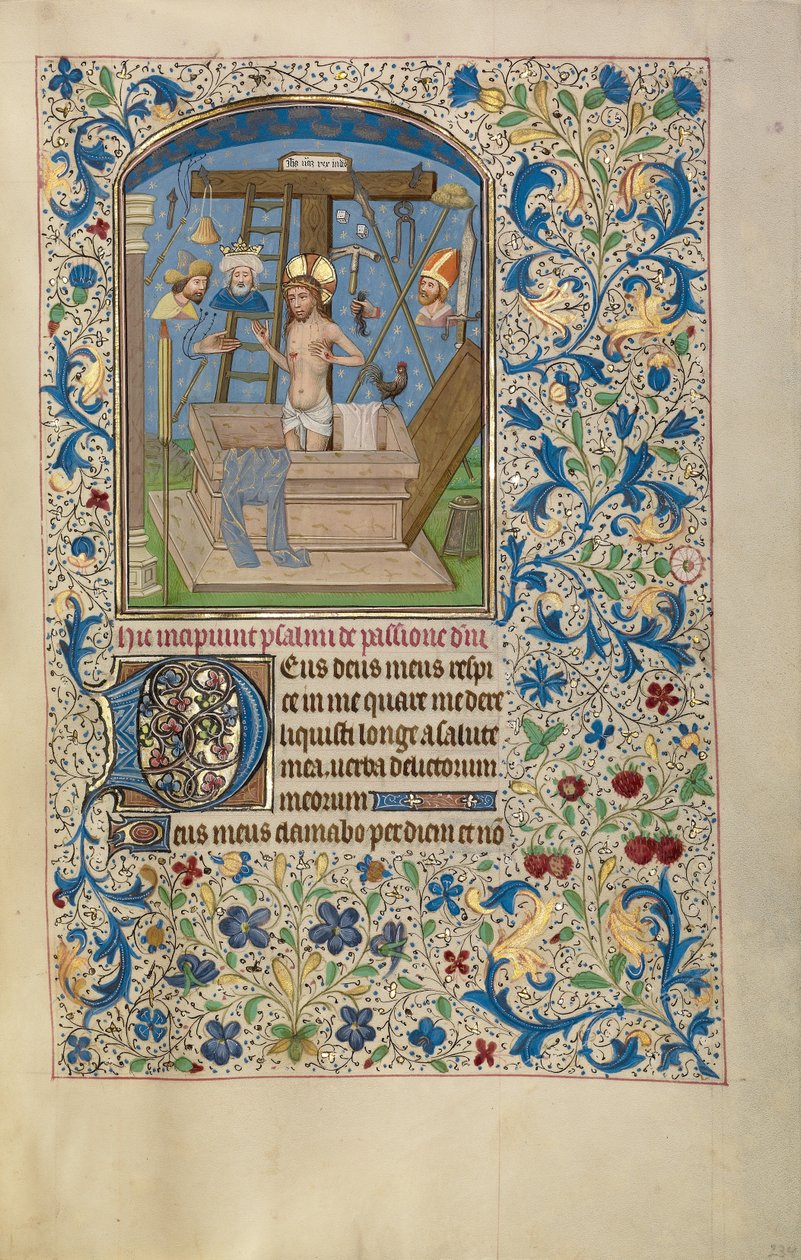 Ihs naz rex iudeo
Hic incipiunt psalmi de passione dni
Deus deus meus respi
ce in me quare me dere
liquisti longe a salute
mea. uerba delictorum
meorum
Deus meus clamabo per diem et nō